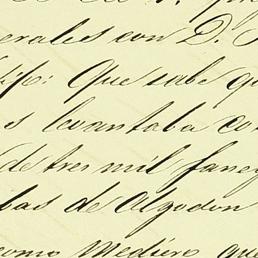 erales con D.
Que sabe q
s levantaba co
de tres mil faneg
bas de Algodon
como Mediero que